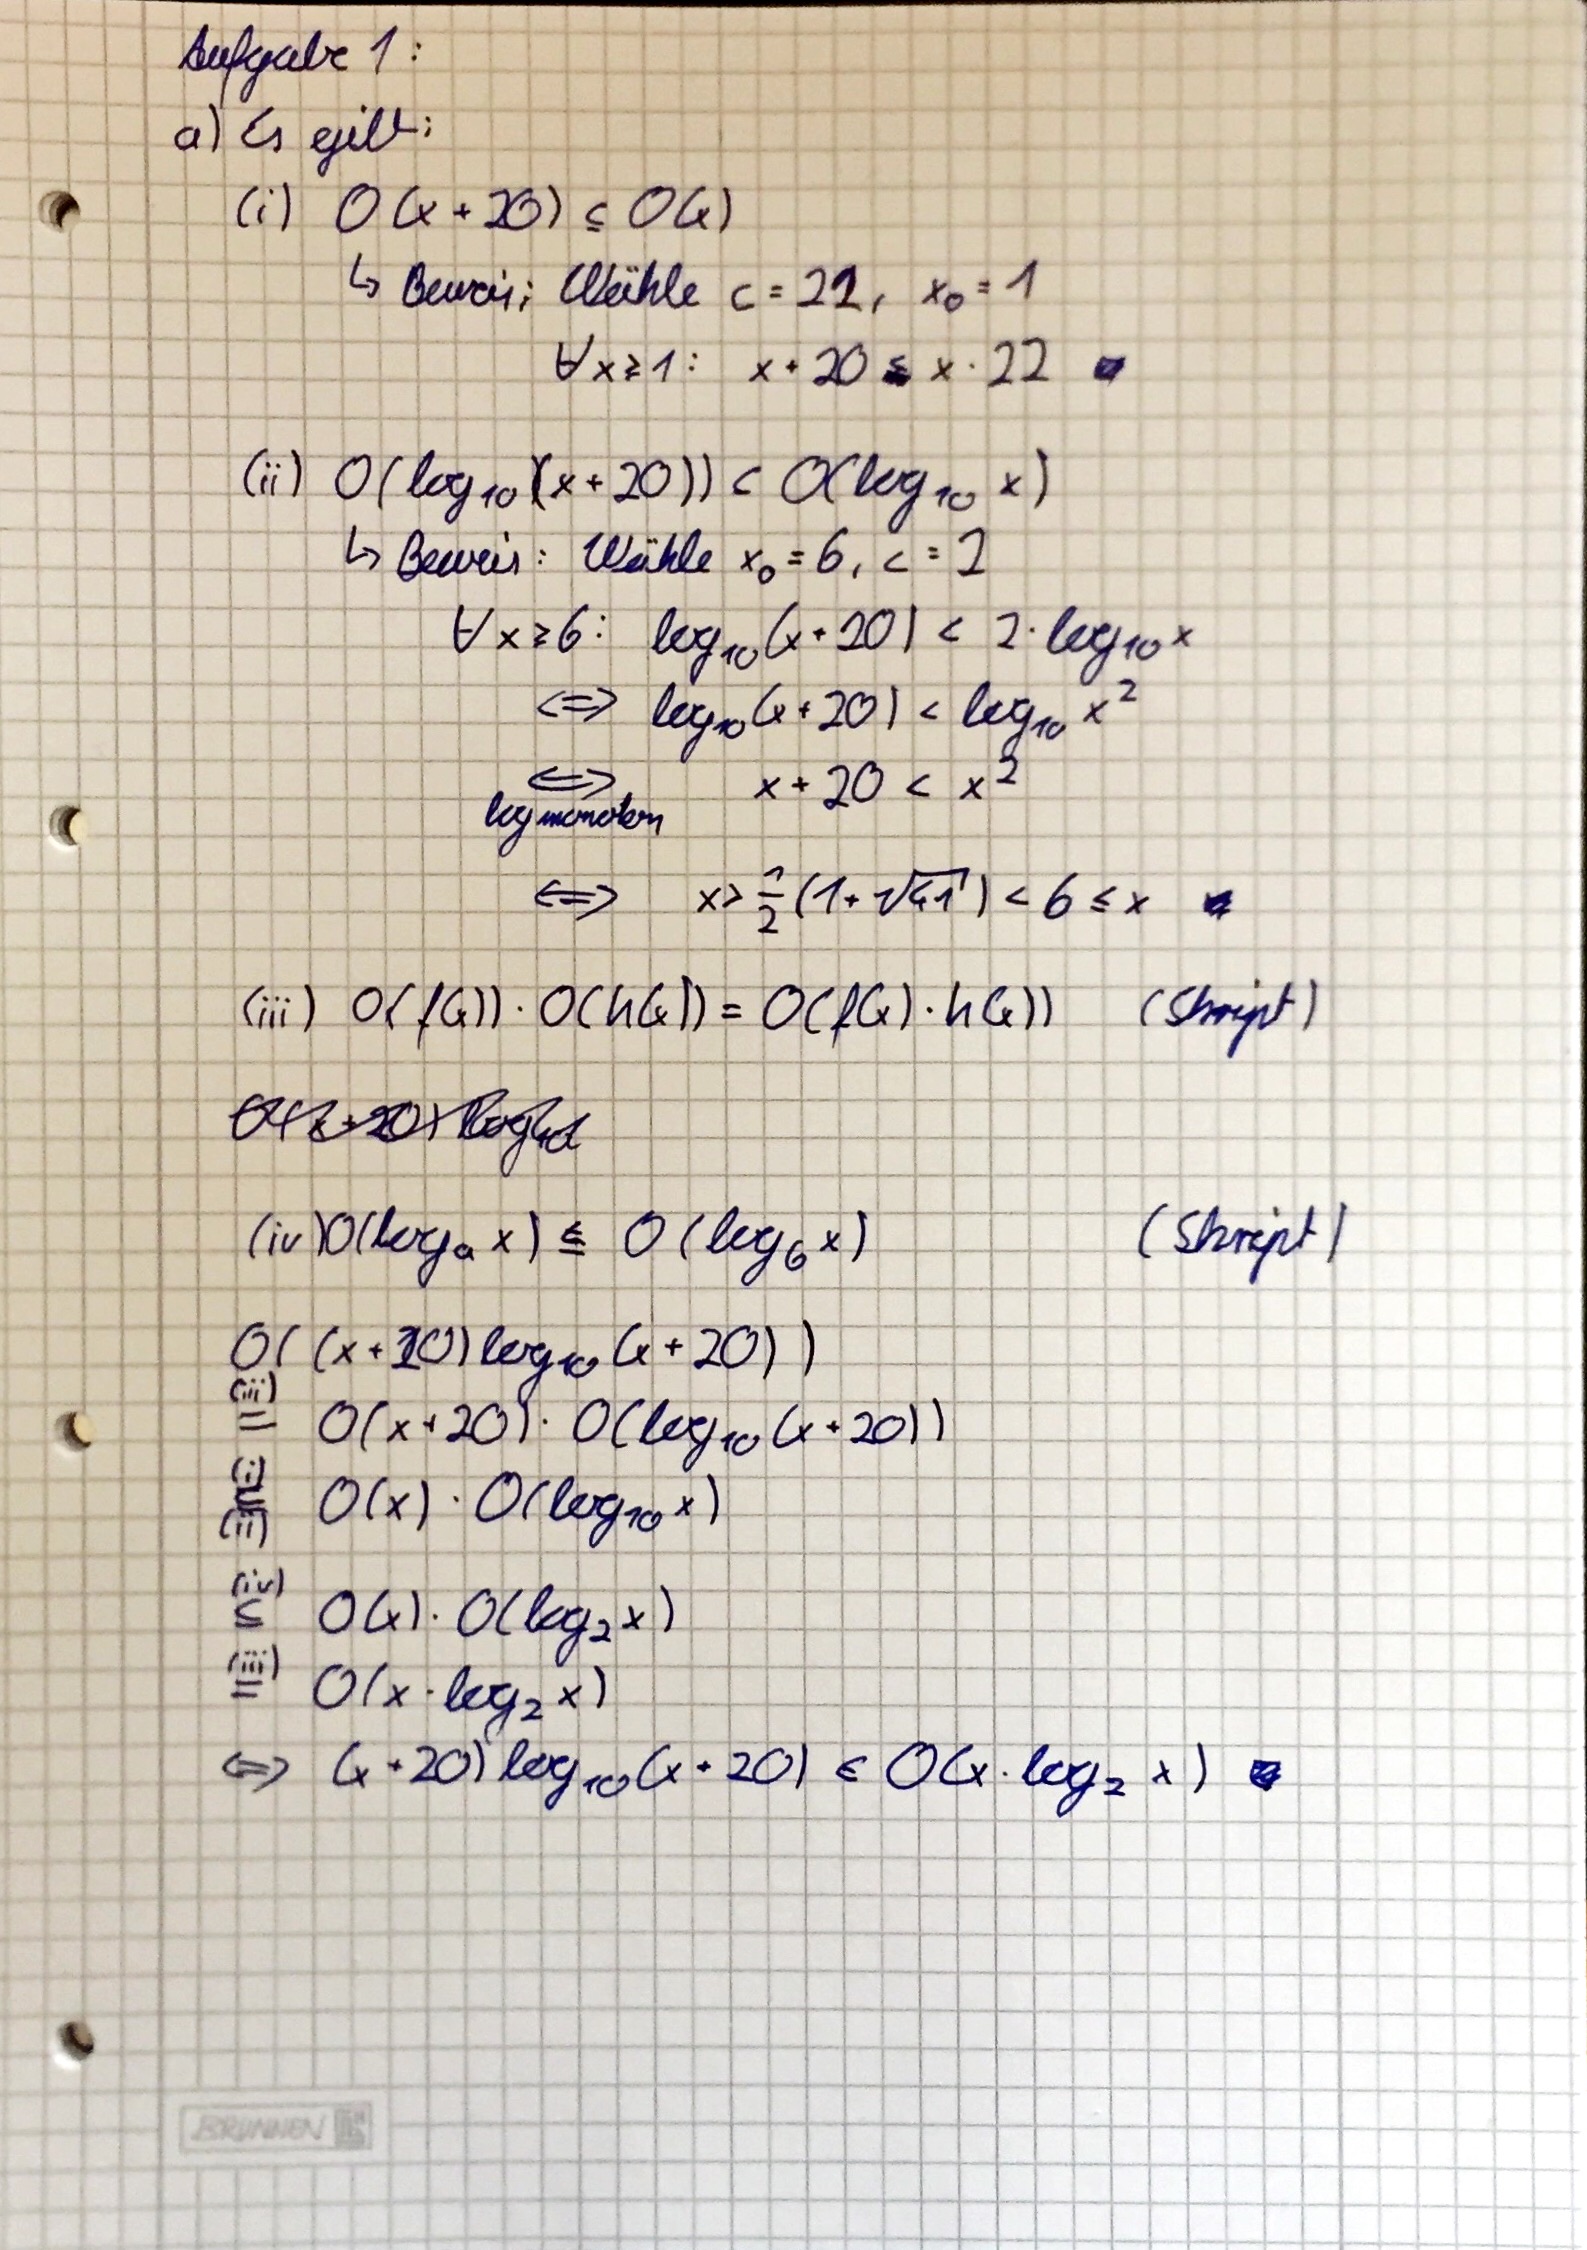 Aufgabe 1:
a) Es gilt:
(i) O(x + 20) ⊆ O(x)
↳ Beweis: Wähle c = 22, x₀ = 1
∀x ≥ 1: x + 20 ≤ x · 22 ■
(ii) O(log₁₀(x + 20)) ⊂ O(log₁₀ x)
↳ Beweis: Wähle x₀ = 6, c = 2
∀x ≥ 6: log₁₀(x + 20) < 2 · log₁₀ x
⇔ log₁₀(x + 20) < log₁₀ x²
⇔ x + 20 < x²
log monoton
⇔ x > ½(1 + √41) < 6 ≤ x ■
(iii) O(f(x)) · O(h(x)) = O(f(x) · h(x)) (Skript)
(iv) O(logₐ x) ⊆ O(log_b x) (Skript)
O((x + 20) log₁₀(x + 20))
(iii) = O(x + 20) · O(log₁₀(x + 20))
(i) ⊆ (ii) O(x) · O(log₁₀ x)
(iv) ⊆ O(x) · O(log₂ x)
(iii) = O(x · log₂ x)
⇔ (x + 20) log₁₀(x + 20) ∈ O(x · log₂ x) ■
BRUNNEN